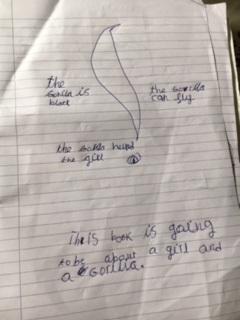 the
Gorilla is
black
the Gorilla
can fly
the Gorilla helped
the girl
This book is going
to be about a girl and
a Gorilla.